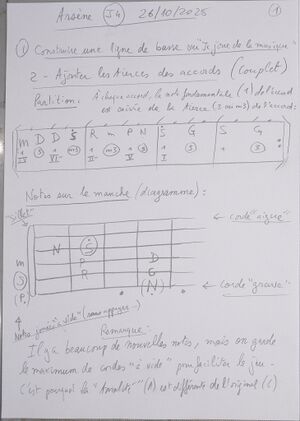 Arsène J4 26/10/2025 1
1 Construire une ligne de basse sur "Je joue de la musique"
2 - Ajouter les tierces des accords (couplet)
Partition : A chaque accord, la note fondamentale (1) de l'accord
est suivie de la tierce (3 ou m3) de l'accord :
m D D Ṡ R m P N Ṡ G S G
1 3 1 m3 1 m3 1 3 1 3 1 3
III VI- II- V I
Notes sur le manche (diagramme) :
Sillet
corde "aigue"
N Ṡ
m P D
S R G
(P) (N) corde "grave"
Notes jouées "à vide" (sans appuyer)
Remarque :
Il y a beaucoup de nouvelles notes, mais on garde
le maximum de cordes "à vide" pour faciliter le jeu -
C'est pourquoi la "tonalité" (A) est différente de l'original (C)